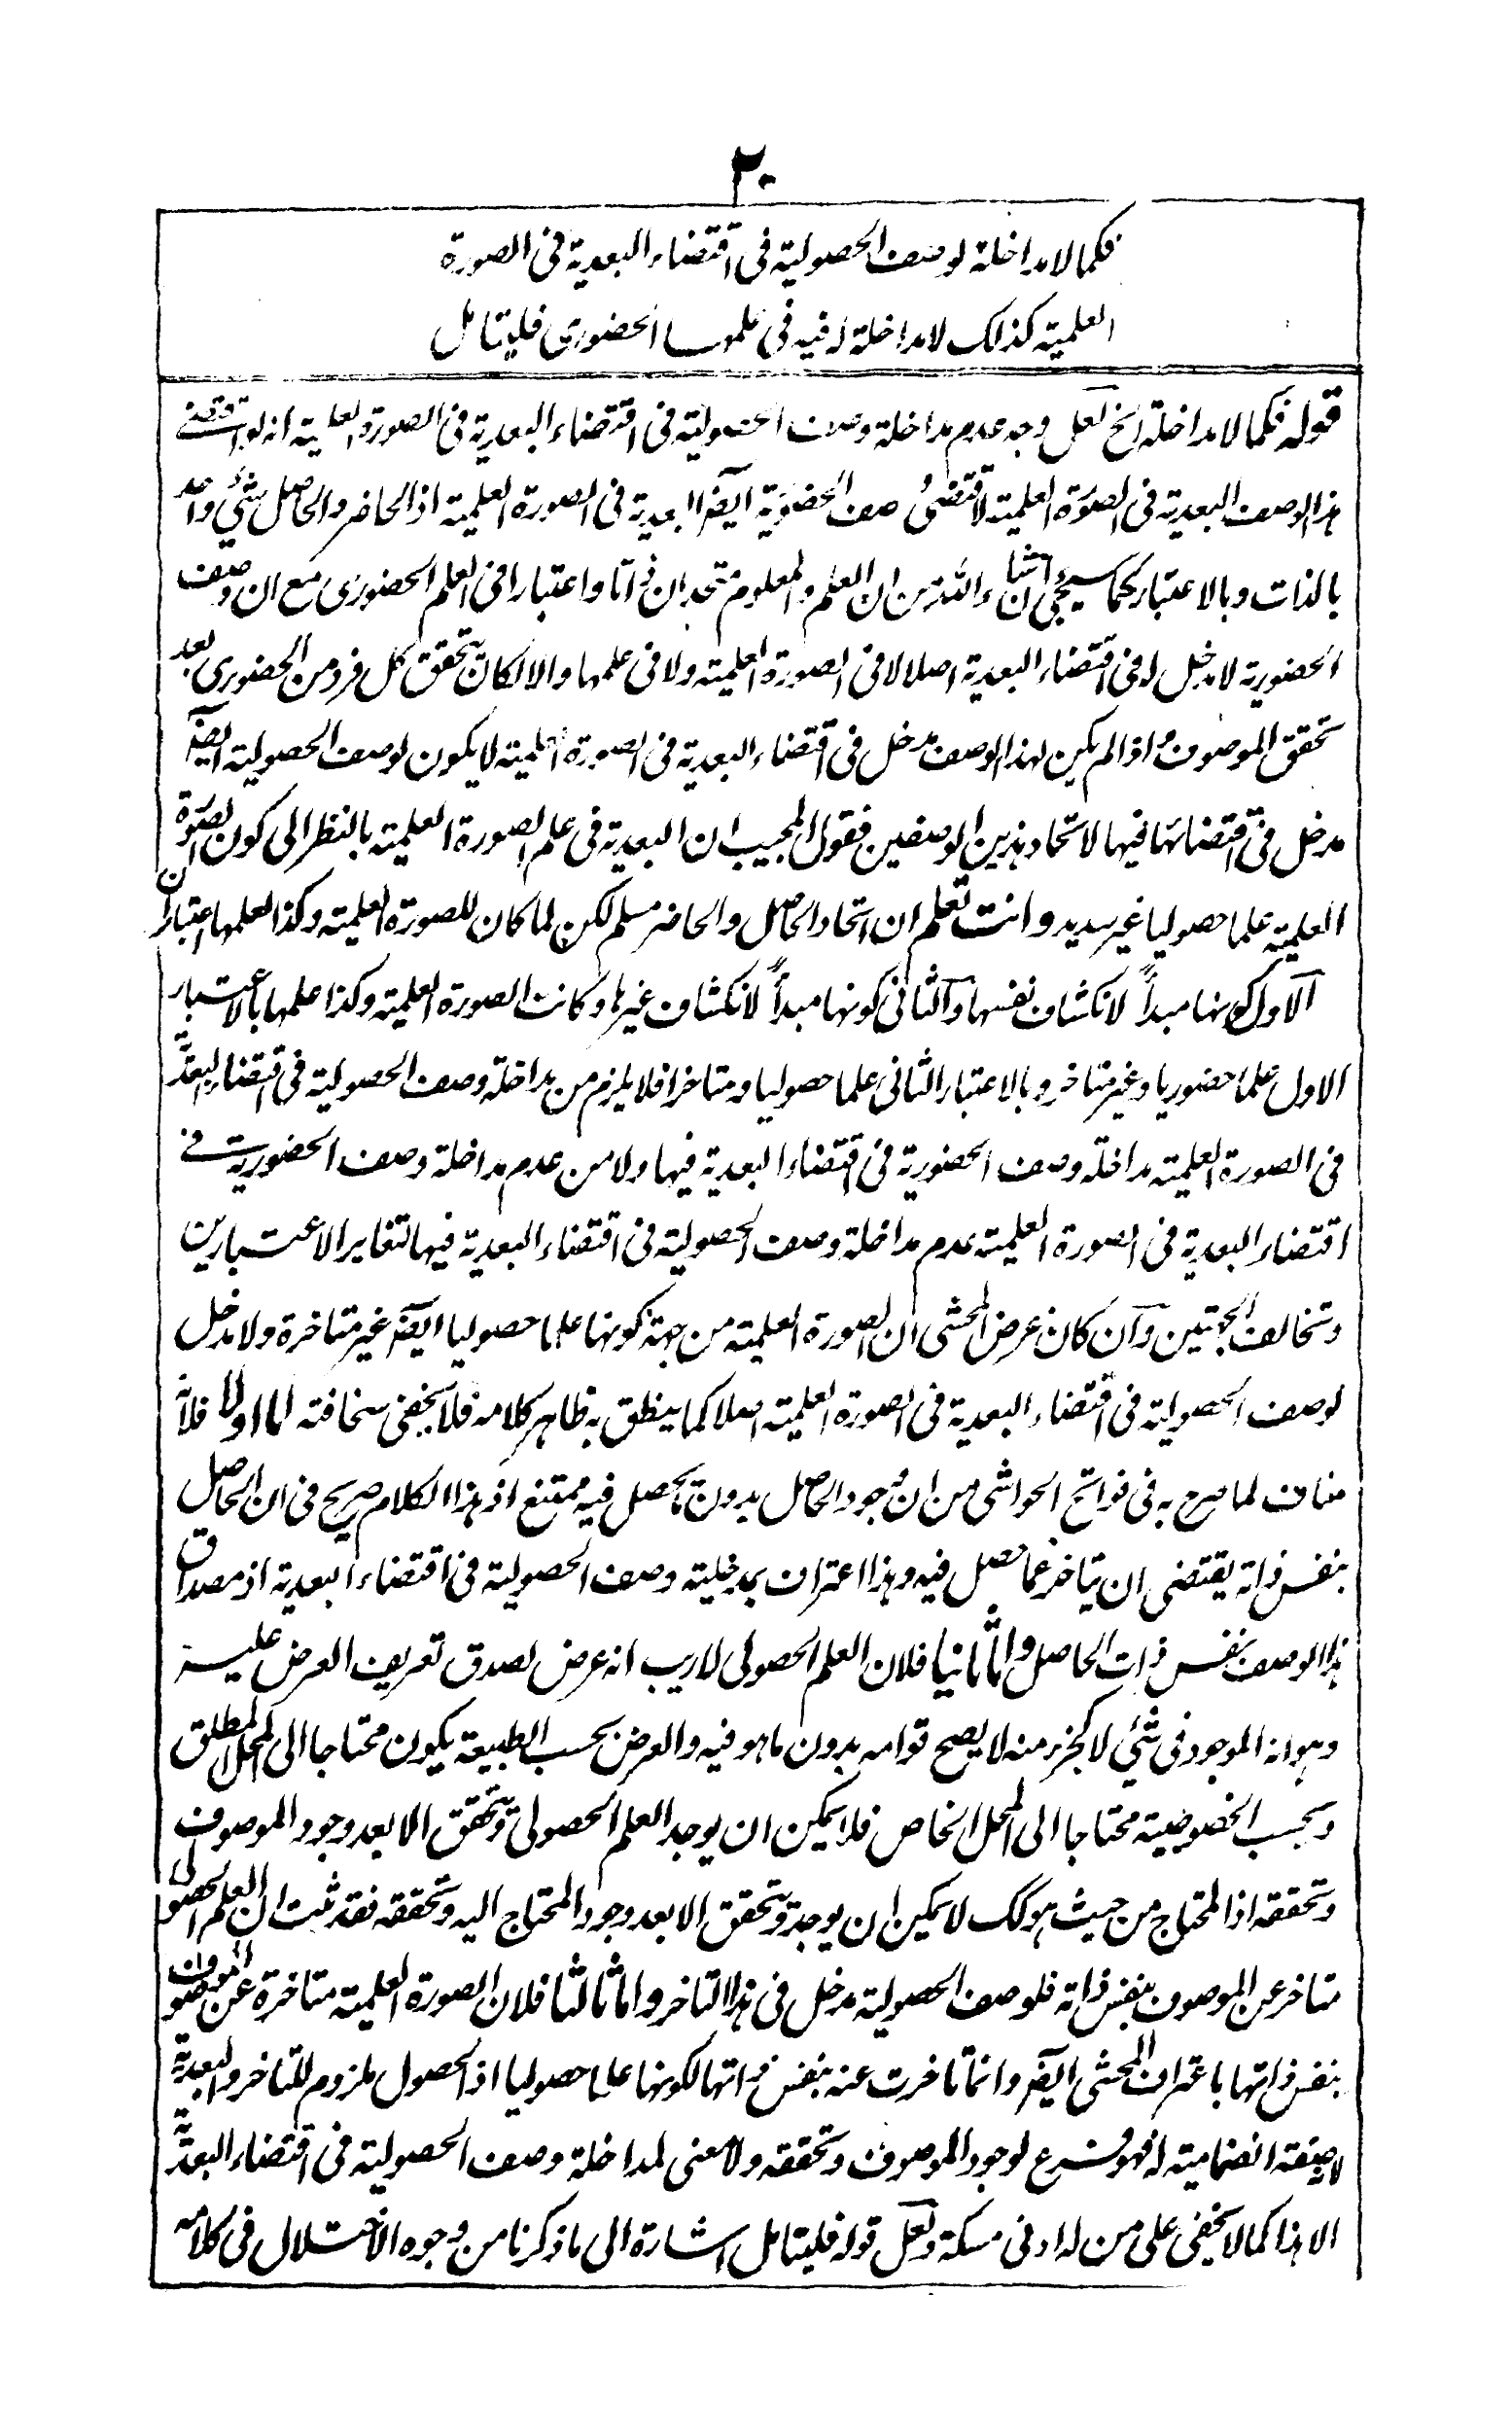 ٢٠
فكما لا مداخلة لوصف الحصولية فى اقتضاء البعدية فى الصورة
العلمية كذلك لا مداخلة له فيه فى علمها الحضورى فليتامل
قوله فكما لا مداخلة الخ لعل وجه عدم مداخلة وصف الحصولية فى اقتضاء البعدية فى الصورة العلمية انه لو اقتضى
هذا الوصف البعدية فى الصورة العلمية لاقتضى وصف الحضورية ايضا البعدية فى الصورة العلمية اذ الحاضر والحاصل شئ واحد
بالذات وبالاعتبار كما سيجئ انشاء الله من ان العلم والمعلوم متحدان ذاتا واعتبارا فى العلم الحضورى مع ان وصف
الحضورية لا مدخل له فى اقتضاء البعدية اصلا لا فى الصورة العلمية ولا فى علمها والا لكان تحقق كل فرد من الحضورى بعد
تحقق الموصوف واذا لم يكن لهذا الوصف مدخل فى اقتضاء البعدية فى الصورة العلمية لا يكون لوصف الحصولية ايضا
مدخل فى اقتضائها فيها لاتحاد هذين الوصفين فقول المجيب ان البعدية فى علم الصورة العلمية بالنظر الى كون الصورة
العلمية علما حصوليا غير سديد وانت تعلم ان اتحاد الحاصل والحاضر مسلم لكن لما كان للصورة العلمية وكذا لعلمها اعتباران
الاول كونها مبدأً لانكشاف نفسها والثانى كونها مبدأً لانكشاف غيرها وكانت الصورة العلمية وكذا علمها بالاعتبار
الاول علما حضوريا وغير متاخر وبالاعتبار الثانى علما حصوليا ومتاخرا فلا يلزم من مداخلة وصف الحصولية فى اقتضاء البعدية
فى الصورة العلمية مداخلة وصف الحضورية فى اقتضاء البعدية فيها ولا من عدم مداخلة وصف الحضورية فى
اقتضاء البعدية فى الصورة العلمية عدم مداخلة وصف الحصولية فى اقتضاء البعدية فيها لتغاير الاعتبارين
وتخالف الجهتين وان كان غرض المحشى ان الصورة العلمية من جهة كونها علما حصوليا ايضا غير متاخرة ولا مدخل
لوصف الحصولية فى اقتضاء البعدية فى الصورة العلمية اصلا كما ينطق به ظاهر كلامه فلا يخفى سخافته اما اولا فلانه
مناف لما صرح به فى فواتح الحواشى من ان وجود الحاصل بدون ما حصل فيه ممتنع اذ هذا الكلام صريح فى ان الحاصل
بنفس ذاته يقتضى ان يتاخر عما حصل فيه وهذا اعتراف بمدخلية وصف الحصولية فى اقتضاء البعدية اذ مصداق
هذا الوصف نفس ذات الحاصل واما ثانيا فلان العلم الحصولى لا ريب انه عرض لصدق تعريف العرض عليه
وهو انه الموجود فى شئ لا كجزء منه لا يصح قوامه بدون ما هو فيه والعرض بحسب الطبيعة يكون محتاجا الى المحل المطلق
وبحسب الخصوصية محتاجا الى المحل الخاص فلا يمكن ان يوجد العلم الحصولى ويتحقق الا بعد وجود الموصوف
وتحققه اذ المحتاج من حيث هو كك لا يمكن ان يوجد ويتحقق الا بعد وجود المحتاج اليه وتحققه فقد ثبت ان العلم الحصولى
متاخر عن الموصوف بنفس ذاته فلوصف الحصولية مدخل فى هذا التاخر واما ثالثا فلان الصورة العلمية متاخرة عن الموصوف
بنفس ذاتها باعتراف المحشى ايضا وانما تاخرت عنه بنفس ذاتها لكونها علما حصوليا اذ الحصول ملزوم للتاخر والبعدية
لا صفة انضمامية له فهو فرع لوجود الموصوف وتحققه ولا معنى لمداخلة وصف الحصولية فى اقتضاء البعدية
الا هذا كما لا يخفى على من له ادنى مسكة ولعل قوله فليتامل اشارة الى ما ذكرنا من وجوه الاختلال فى كلامه